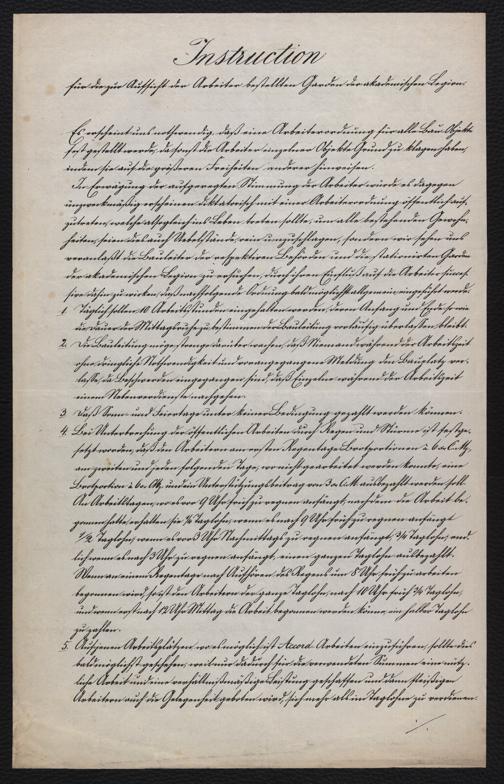 Instruction
für die zur Aufsicht der Arbeiter bestellten Garden der akademischen Legion.
Es erscheint uns nothwendig, daß eine Arbeiterordnung für alle Bau-Objekte
festgestellt werde, da sonst die Arbeiter einzelner Objekte Grund zu klagen haben,
indem sie auf die größeren Freiheiten anderer hinweisen.
In Erwägung der aufgeregten Stimmung der Arbeiter würde es dagegen
unzweckmäßig erscheinen diktatorisch mit einer Arbeiterordnung öffentlich auf-
zutreten, welche alsogleich ins Leben treten sollte, um alle bestehenden Gewohn-
heiten, seien dies auch Uebelstände, ein umzuschlagen, sondern wir sehen uns
veranlaßt die Bauleiter der respektiven Behörden und die stationirten Garden
der akademischen Legion zu ersuchen, durch ihren Einfluß auf die Arbeiter
dahin zu wirken, daß nachfolgende Ordnung baldmöglichst allgemein eingeführt werde.
1. Täglich sollen 10 Arbeitsstunden eingehalten werden, deren Anfang und Ende so wie
die Dauer der Mittagsruhe zu bestimmen der Bauleitung vorläufig überlassen bleibt.
2. Die Bauleitung möge strenge darüber wachen, daß Niemand während der Arbeitszeit
ohne dringliche Nothwendigkeit und vorangegangene Meldung den Bauplatz ver-
lasse, da Beschwerden eingegangen sind, daß Einzelne während der Arbeitszeit
einem Nebenverdienste nachgehen.
3. Daß Sonn- und Feiertage unter keiner Bedingung gezahlt werden können.
4. Bei Unterbrechung der öffentlichen Arbeiten durch Regen und Stürme ist festge-
setzt worden, daß den Arbeitern am ersten Regentage Brodportionen à 6 x C.Mz,
am zweiten und jeden folgenden Tage, wo nicht gearbeitet werden konnte, eine
Brodportion à 6 x CMz und ein Unterstützungsbeitrag von 3 x C.M ausbezahlt werden soll.
An Arbeitstagen, wo es vor 9 Uhr früh zu regnen anfängt, nachdem die Arbeit be-
gonnen hatte, erhalten sie ¼ Taglohn, wenn es nach 9 Uhr früh zu regnen anfängt
½ Taglohn, wenn es vor 3 Uhr Nachmittags zu regnen anfängt, ¾ Taglohn, end-
lich wenn es nach 3 Uhr zu regnen anfängt, einen ganzen Taglohn ausbezahlt.
Wenn an einem Regentage nach Aufhören des Regens um 8 Uhr früh zu arbeiten
begonnen wird, ist den Arbeitern der ganze Taglohn, nach 10 Uhr früh ¾ Taglohn,
und wenn erst nach 12 Uhr Mittag die Arbeit begonnen werden könne, ein halber Taglohn
zu zahlen.
5. Auf jenen Arbeitsplätzen, wo es möglich ist Accord-Arbeiten einzuführen, sollte dies
baldmöglichst geschehen, weil nur dadurch für die verwendeten Summen eine nütz-
liche Arbeit und eine verhältnißmäßige Leistung geschaffen und dem fleißigen
Arbeitern auch die Gelegenheit geboten wird, sich mehr als im Taglohne zu verdienen.
./.